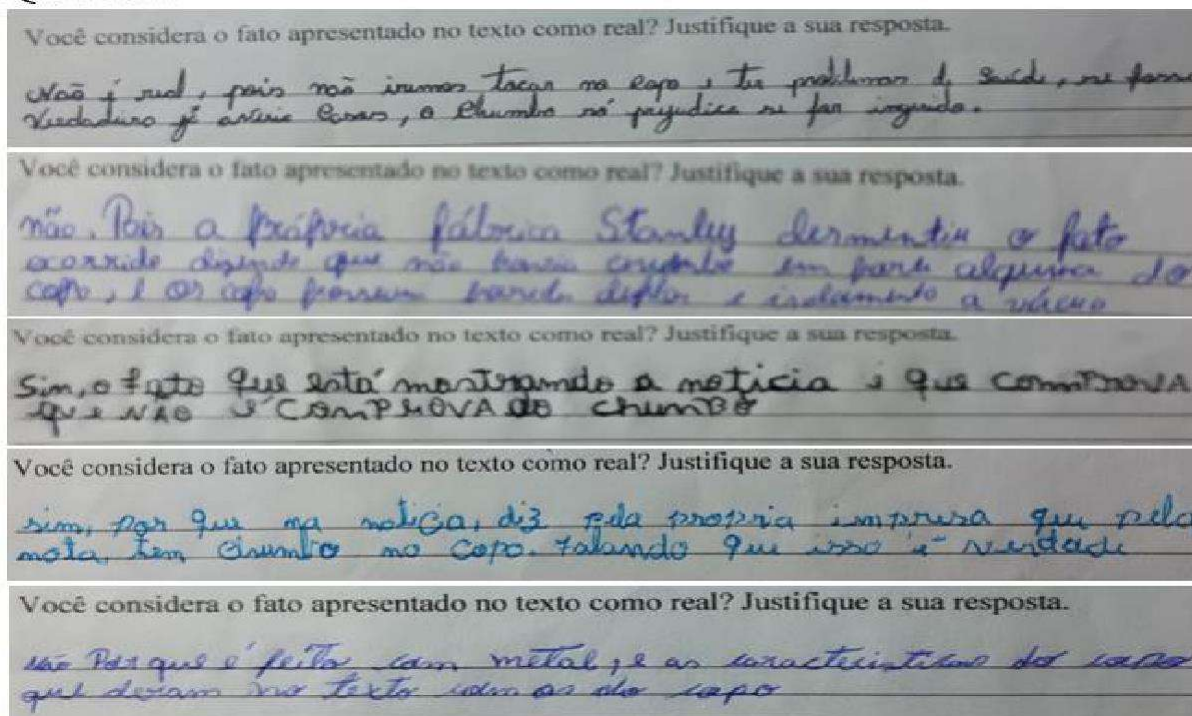 Você considera o fato apresentado no texto como real? Justifique a sua resposta.
Não é real, pois não iremos tocar no copo e ter problemas de saúde, se fosse
Verdadeiro já casos, o Chumbo só prejudica se for ingerido.
Você considera o fato apresentado no texto como real? Justifique a sua resposta.
não. Pois a própria fábrica Stanley dermentiu o fato
ocorrido dizendo que não havia em parte alguma do
copo, e os copo possuem parede e isolamento a vácuo
Você considera o fato apresentado no texto como real? Justifique a sua resposta.
Sim, o fato que está mostrando a noticia é que comprova
que NÃO é COMPROVADO chumbo
Você considera o fato apresentado no texto como real? Justifique a sua resposta.
sim, por que na noticia, diz pela propria impresa que pela
nota tem chumbo no copo. falando que isso é verdade
Você considera o fato apresentado no texto como real? Justifique a sua resposta.
não Por que é feito com metal, e as do copo
que deram no texto com as do copo